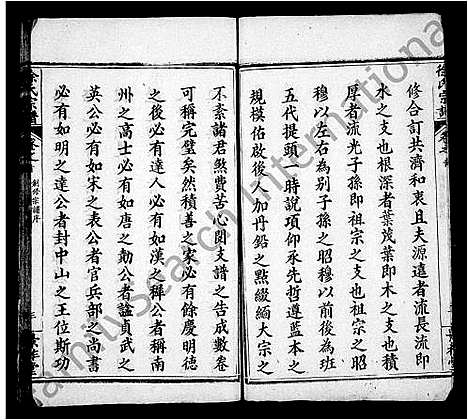 徐氏宗譜
修合訂共濟和衷且夫源遠者流長流即
水之支也根深者葉茂葉即木之支也積
厚者流光子孫即祖宗之支也祖宗之昭
穆以左右為別子孫之昭穆以前後為班
五代提頭一時說項仰承先哲遵藍本之
規模佑啟後人加丹鉛之點綴緬大宗之
不紊諸君煞費苦心閱支譜之告成數卷
可稱完璧矣然積善之家必有餘慶明德
之後必有達人必有如漢之穉公者稱南
州之高士必有如唐之勣公者諡貞武之
英公必有如宋之表公者官兵部之尚書
必有如明之達公者封中山之王位斯功
徐氏宗譜
卷之首
創修宗譜序